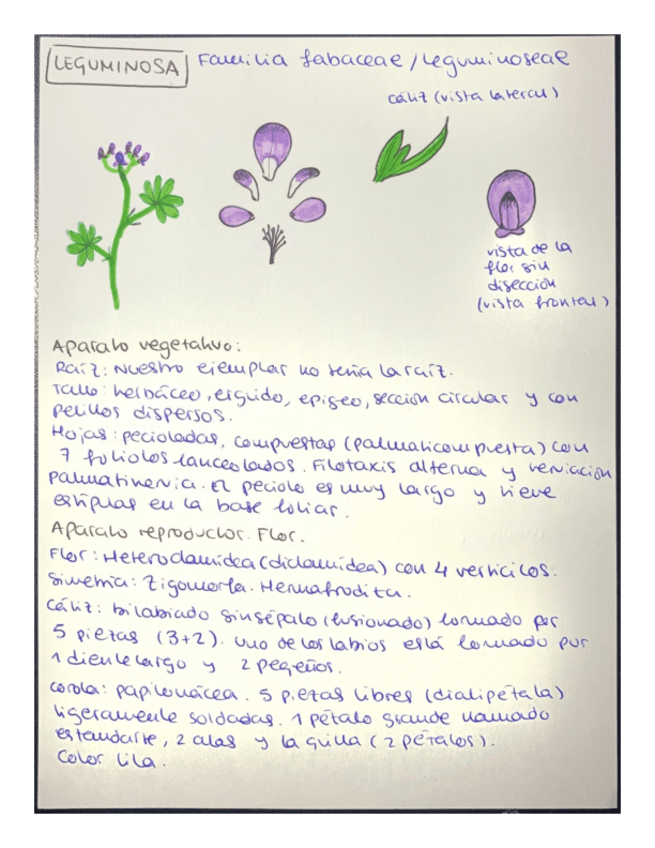 LEGUMINOSA
Familia fabaceae / leguminoseae
cáliz (vista lateral)
vista de la
flor sin
disección
(vista frontal)
Aparato vegetativo:
Raíz: Nuestro ejemplar no tenía la raíz.
Tallo: herbáceo, erguido, epigeo, sección circular y con
pelillos dispersos.
Hojas: pecioladas, compuestas (palmaticompuesta) con
7 foliolos lanceolados. Filotaxis alterna y nerviación
palmatinervia. El peciolo es muy largo y tiene
estípulas en la base foliar.
Aparato reproductor. Flor.
Flor: Heteroclamídea (diclamídea) con 4 verticilos.
Simetría: Zigomorfa. Hermafrodita.
Cáliz: bilabiado sinsépalo (fusionado) formado por
5 piezas (3+2). Uno de los labios está formado por
1 diente largo y 2 pequeños.
Corola: papilonácea. 5 piezas libres (dialipétala)
ligeramente soldadas. 1 pétalo grande llamado
estandarte, 2 alas y la quilla (2 pétalos).
Color lila.